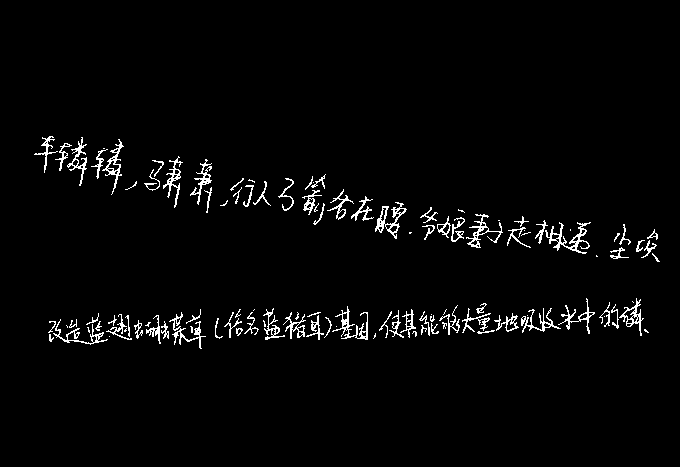 车辚辚,马萧萧,行人弓箭各在腰.爷娘妻子走相送.尘埃
改造蓝翅蝴蝶草(俗名蓝猪耳)基因,使其能够大量地吸收水中的磷、